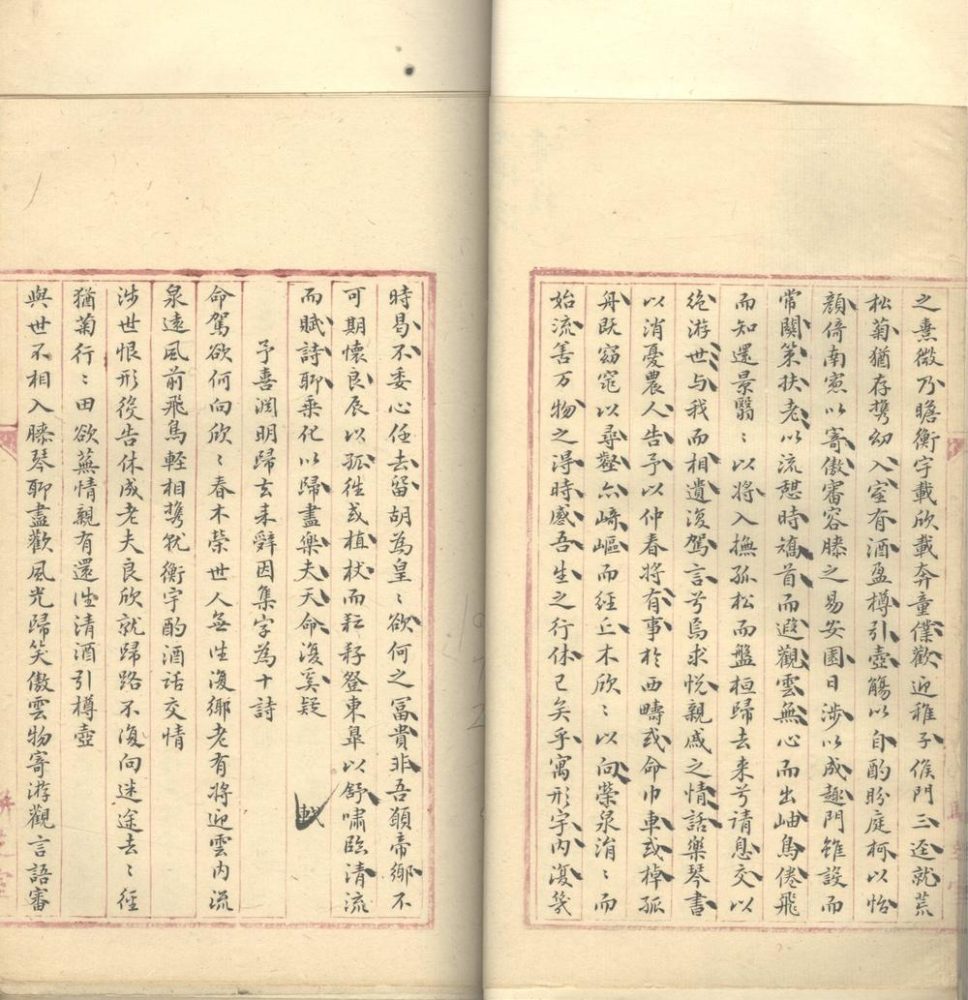 之熹微乃瞻衡宇載欣載奔童僕歡迎稚子候門三迳就荒
松菊猶存携幼入室有酒盈樽引壺觴以自酌盼庭柯以怡
顔倚南窓以寄傲審容膝之易安園日涉以成趣門雖設而
常關策扶老以流憩時矯首而遐觀雲無心而出岫鳥倦飛
而知還景翳〻以將入撫孤松而盤桓歸去来兮請息交以
絶游世与我而相遺復駕言兮焉求悦親戚之情話樂琴書
以消憂農人告予以仲春將有事於西疇或命巾車或棹孤
舟既窈窕以尋壑亦崎嶇而經丘木欣〻以向榮泉涓〻而
始流善万物之得時感吾生之行休已矣乎寓形宇内復幾
時曷不委心任去留胡為皇〻欲何之冨貴非吾願帝鄉不
可期懷良辰以孤往或植杖而耘耔登東皐以舒嘯臨清流
而賦詩聊乘化以歸盡樂夫天命復奚疑 軾
予喜淵明歸去来辭因集字為十詩
命駕欲何向欣〻春木榮世人無往復鄉老有將迎雲内流
泉遠風前飛鳥輕相携就衡宇酌酒話交情
涉世恨形役告休成老夫良欣就歸路不復向迷途去〻徑
猶菊行〻田欲蕪情親有還往清酒引樽壺
與世不相入膝琴聊盡歡風光歸笑傲雲物寄游觀言語審